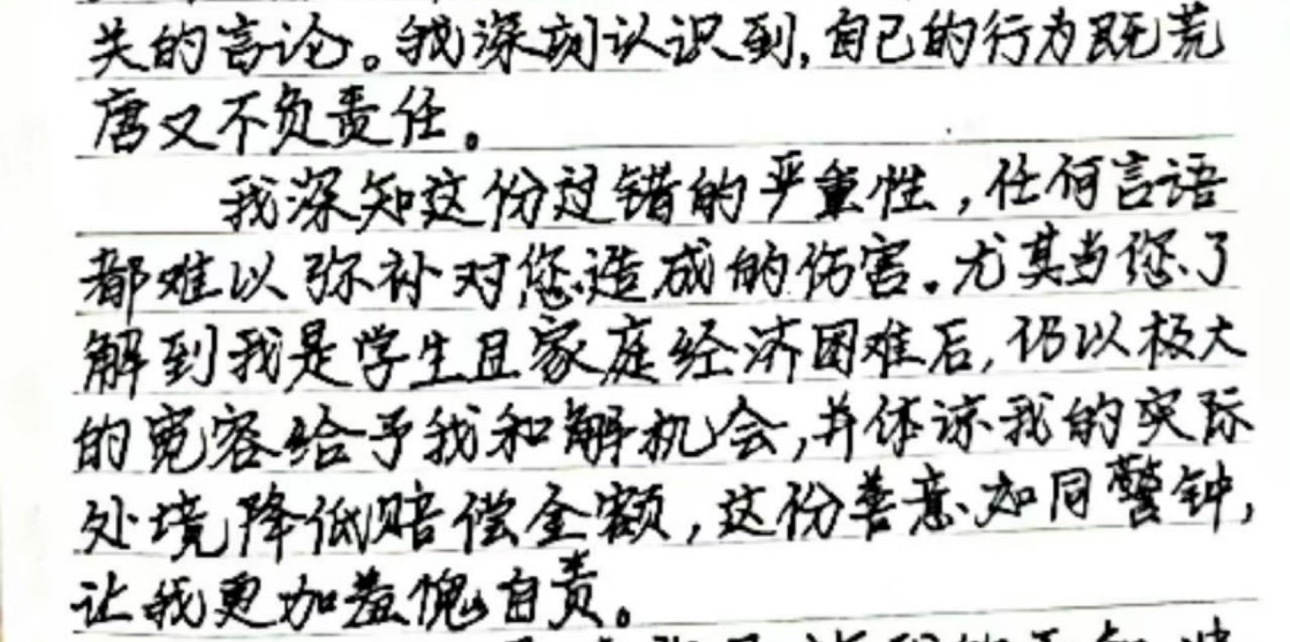 关的言论。我深刻认识到,自己的行为既荒
唐又不负责任。
我深知这份过错的严重性,任何言语
都难以弥补对您造成的伤害。尤其当您了
解到我是学生且家庭经济困难后,仍以极大
的宽容给予我和解机会,并体谅我的实际
处境降低赔偿金额,这份善意如同警钟,
让我更加羞愧自责。